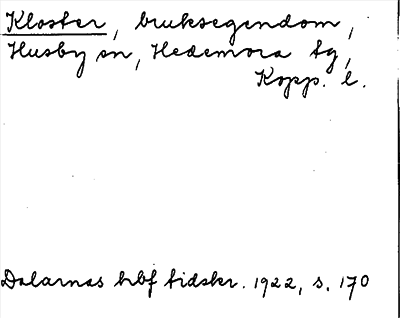 Kloster, bruksegendom,
Husby sn, Hedemora tg,
Kopp. l.
Dalarnas hbf tidskr. 1922, s. 170